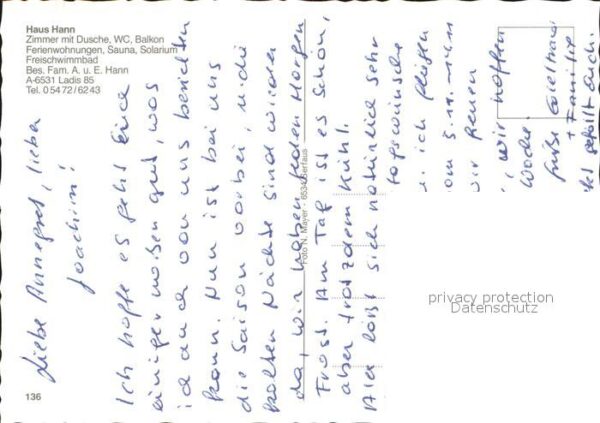 Haus Hann
Zimmer mit Dusche, WC, Balkon
Ferienwohnungen, Sauna, Solarium
Freischwimmbad
Bes. Fam. A. u. E. Hann
A-6531 Ladis 85
Tel. 0 54 72 / 62 43
Liebe Annegret, lieber
Joachim!
Ich hoffe es geht Euch
einigermaßen gut, was
ich auch von uns berichten
kann. Nun ist bei uns
die Saison vorbei, u. die
kalten Nächte sind wieder
da, wir haben jeden Morgen
Frost. Am Tag ist es schön,
aber trotzdem kühl.
Alex läßt sich natürlich sehr
u. ich fliegen
am 5.11.
wir freuen
, wir hoffen
Woche.
Grüße
+ Familie
Foto N. Mayer - 6534 Serfaus
136
privacy protection
Datenschutz